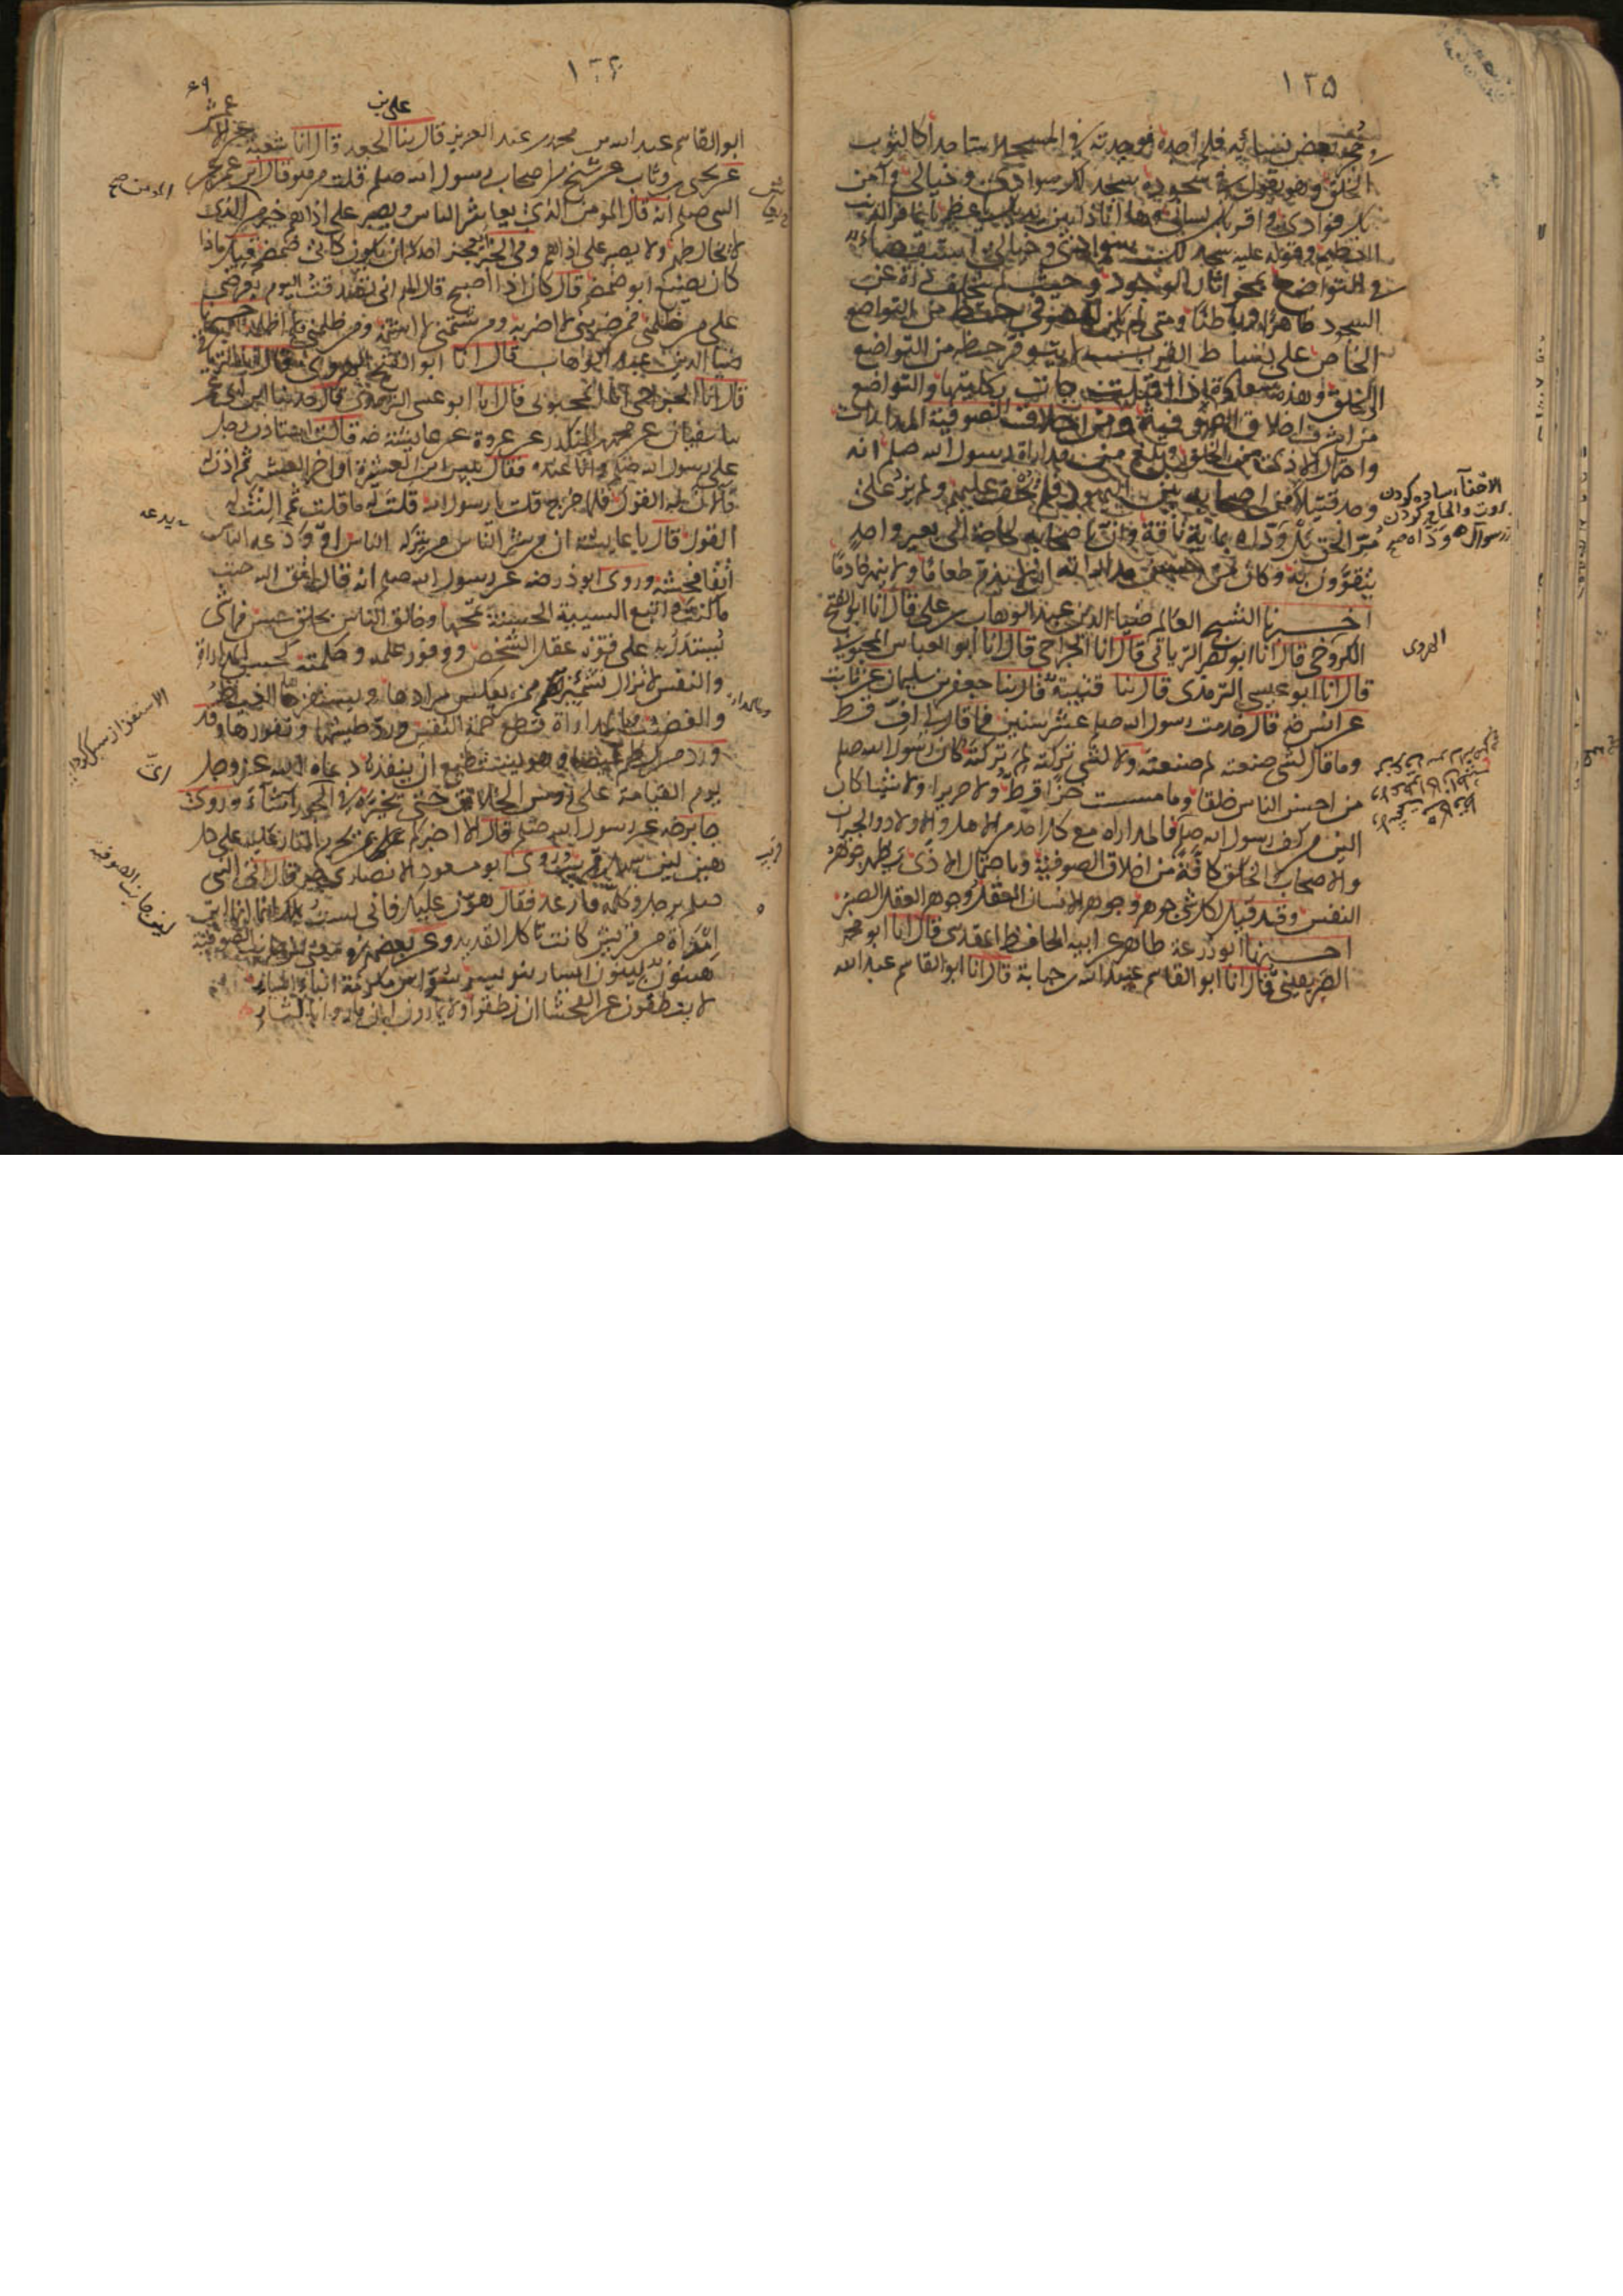 ١٢٥
بعض نسائه فلم اجده فوجدته في المسجد ساجدا كالثوب
الخلق وهو يقول في سجوده سجد لك سوادي وخيالي وآمن
بك فؤادي واقر بك لساني وها انا ذا بين يديك يا عظيم يا غافر الذنب
العظيم وقوله عليه سجد لك سوادي وخيالي استقصاء
في التواضع بمحو اثار الوجود وحيث لم يتخلف ذرة عن
السجود ظاهرا وباطنا ومتى لم يكن للصوفي حظ من التواضع
الخاص على بساط القرب لا يتوفر حظه من التواضع
للخلق وهذه سعادة اذا اقبلت جاءت بكليتها والتواضع
من اشرف اخلاق الصوفية ومن اخلاق الصوفية المداراة
واحتمال الاذى من الخلق وبلغ من مداراة رسول الله صلم انه
وجد قتيلا من اصحابه بين اليهود فلم يحف عليهم ولم يزد على
مر الحق بل وداه بماية ناقة وان باصحابه لحاجة الى بعير واحد
يتقوون به وكان من حسن مداراته ان لا يذم طعاما ولا ينهر خادما
اخبرنا الشيخ العالم ضياء الدين عبد الوهاب بن علي قال انا ابو الفتح
الكروخي قال انا ابو نصر الترياقي قال انا الجراحي قال انا ابو العباس المحبوبي
قال انا ابو عيسى الترمذي قال ثنا قتيبة قال ثنا جعفر بن سليمان عن ثابت
عن انس رضه قال خدمت رسول الله صلم عشر سنين فما قال لي اف قط
وما قال لشي صنعته لم صنعته ولا لشي تركته لم تركته وكان رسول الله صلم
من احسن الناس خلقا وما مسست خزا قط ولا حريرا ولا شيئا كان
الين من كف رسول الله صلم فالمداراة مع كل احد من الاهل والاولاد والجيران
والاصحاب والخلق كافة من اخلاق الصوفية وباحتمال الاذى يظهر جوهر
النفس وقد قيل لكل شي جوهر وجوهر الانسان العقل وجوهر العقل الصبر
اخبرنا ابو زرعة طاهر عن ابيه الحافظ المقدسي قال انا ابو محمد
الصريفيني قال انا ابو القاسم عبيد الله بن حبابة قال انا ابو القاسم عبد الله
الهروي
١٢٦
٦٩
علي بن
ابو القاسم عبد الله بن محمد بن عبد العزيز قال ثنا الجعد قال انا شعبة عن الاعمش
عن يحيى بن وثاب عن شيخ من اصحاب رسول الله صلم قلت من هو قال ابن عمر عن
النبي صلم انه قال المومن الذي يعاشر الناس ويصبر على اذاهم خير من الذي
لا يخالطهم ولا يصبر على اذاهم وفي الخبر ايعجز احدكم ان يكون كابي ضمضم قيل ماذا
كان يصنع ابو ضمضم قال كان اذا اصبح قال اللهم اني تصدقت اليوم بعرضي
على من ظلمني فمن ضربني لا اضربه ومن شتمني لا اشتمه ومن ظلمني لا اظلمه اخبرنا
ضيا الدين عبد الوهاب قال انا ابو الفتح الهروي قال انا الترياقي
قال انا الجراحي قال انا المحبوبي قال انا ابو عيسى الترمذي قال حدثنا ابن ابي عمر
ثنا سفيان عن محمد بن المنكدر عن عروة عن عايشة رضه قالت استاذن رجل
على رسول الله صلم وانا عنده فقال بيس ابن العشيرة او اخو العشيرة ثم اذن له
فالان له القول فلما خرج قلت يا رسول الله قلت له ما قلت ثم النت له
القول قال يا عايشة ان من شر الناس من يتركه الناس او ودعه الناس
اتقا فحشه وروى ابو ذر رضه عن رسول الله صلم انه قال اتق الله حيث
ما كنت واتبع السيئة الحسنة تمحها وخالق الناس بخلق حسن فما شي
يستدل به على قوة عقل الشخص ووفور علمه وحلمه كحسن المداراة
والنفس لا تزال تشمئز ممن يعكس مرادها ويستفزها الغيظ
والغضب وبالمداراة قطع حمة النفس ورد طيشها ونفورها وقد
ورد من كظم غيظا وهو يستطيع ان ينفذه دعاه الله عز وجل
يوم القيامة على رؤس الخلائق حتى يخيره في اي الحور شاء وروى
جابر رضه عن رسول الله صلم قال الا اخبركم على من تحرم النار على كل
هين لين سهل قريب وروى ابو مسعود الانصاري رضه قال اتى النبي
صلم برجل وكلمه فارعد فقال هون عليك فاني لست بملك انما انا ابن
امراة من قريش كانت تاكل القديد وعن بعضهم في معنى لين جانب الصوفية
هينون لينون ايسار بنو يسر سواس مكرمة ابناء ايسار
لا ينطقون عن الفحشا ان نطقوا ولا يمارون ان ماروا باكثار
المومن صح
يدعه
وبالمداراة
قريب